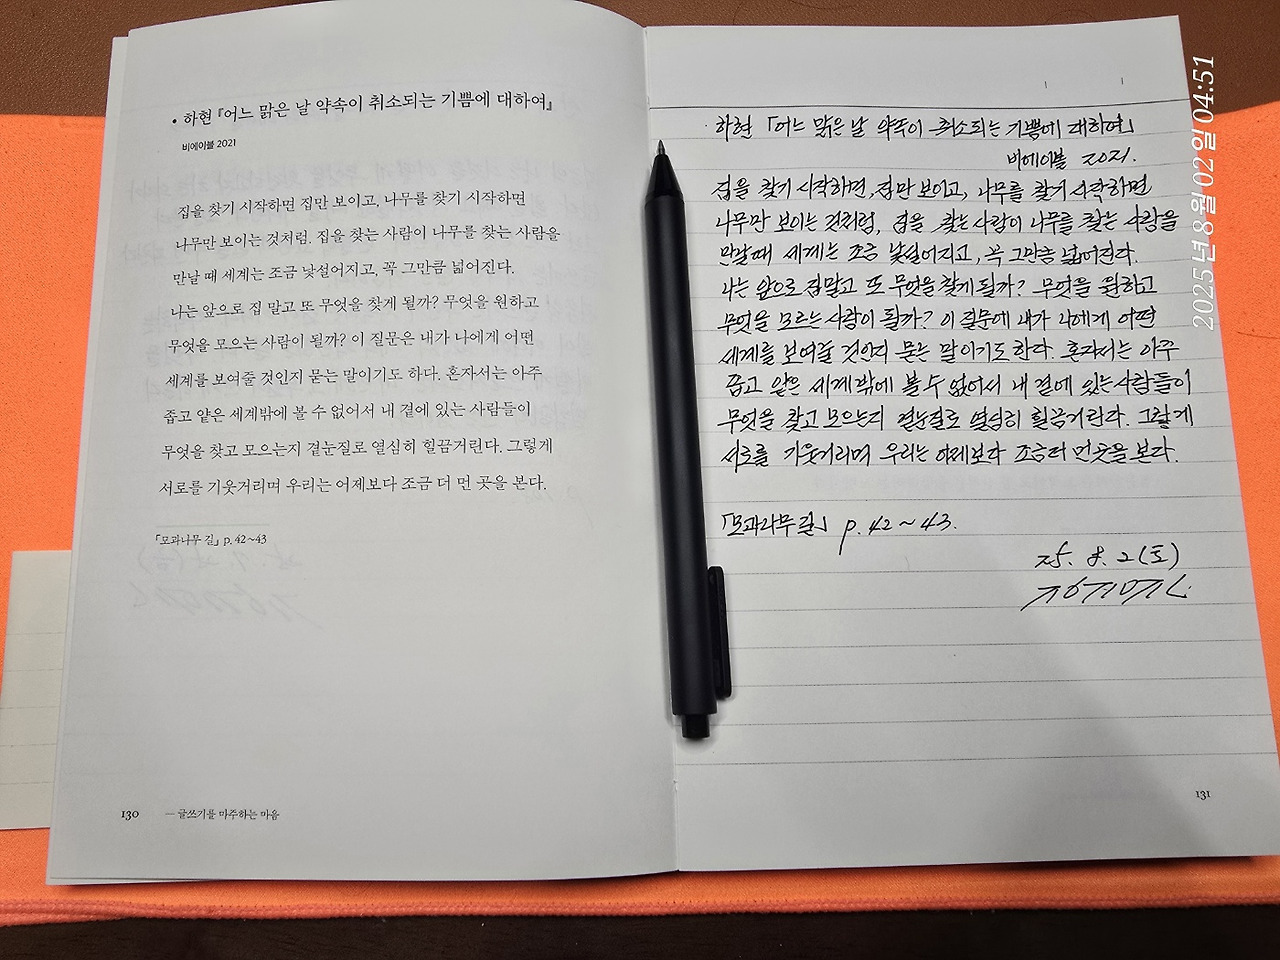 • 하현 『어느 맑은 날 약속이 취소되는 기쁨에 대하여』
비에이블 2021
집을 찾기 시작하면 집만 보이고, 나무를 찾기 시작하면
나무만 보이는 것처럼. 집을 찾는 사람이 나무를 찾는 사람을
만날 때 세계는 조금 낯설어지고, 꼭 그만큼 넓어진다.
나는 앞으로 집 말고 또 무엇을 찾게 될까? 무엇을 원하고
무엇을 모으는 사람이 될까? 이 질문은 내가 나에게 어떤
세계를 보여줄 것인지 묻는 말이기도 하다. 혼자서는 아주
좁고 얕은 세계밖에 볼 수 없어서 내 곁에 있는 사람들이
무엇을 찾고 모으는지 곁눈질로 열심히 힐끔거린다. 그렇게
서로를 기웃거리며 우리는 어제보다 조금 더 먼 곳을 본다.
「모과나무 길」 p. 42~43
130 — 글쓰기를 마주하는 마음
하현 「어느 맑은 날 약속이 취소되는 기쁨에 대하여」
비에이블 2021.
집을 찾기 시작하면, 집만 보이고, 나무를 찾기 시작하면
나무만 보이는 것처럼, 집을 찾는 사람이 나무를 찾는 사람을
만날 때 세계는 조금 낯설어지고, 꼭 그만큼 넓어진다.
나는 앞으로 집 말고 또 무엇을 찾게 될까? 무엇을 원하고
무엇을 모으는 사람이 될까? 이 질문에 내가 나에게 어떤
세계를 보여줄 것인지 묻는 말이기도 한다. 혼자서는 아주
좁고 얕은 세계밖에 볼 수 없어서 내 곁에 있는 사람들이
무엇을 찾고 모으는지 곁눈질로 열심히 힐끔거린다. 그렇게
서로를 기웃거리며 우리는 어제보다 조금 더 먼 곳을 본다.
「모과나무 길」 p. 42~43.
25. 8. 2 (토)
131
2025년 8월 02일 04:51